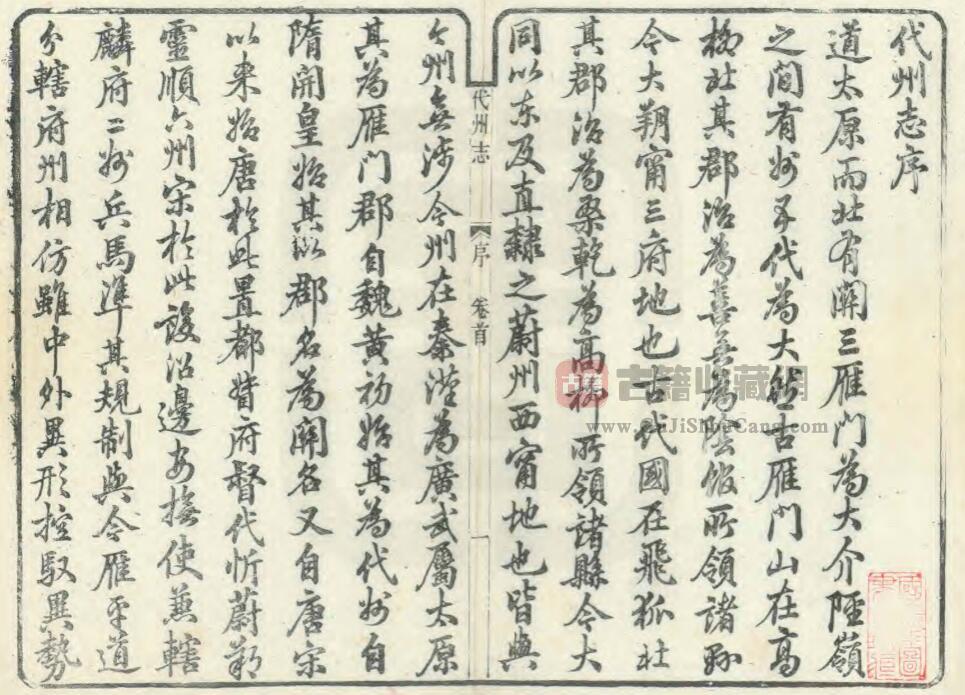 代州志序
道太原而北有關三雁門為大介陘嶺
之間有州曰代為大然古雁門山在高
柳北其郡治為善無為陰館所領諸縣
今大朔甯三府地也古代國在飛狐北
其郡治為桑乾為高柳所領諸縣今大
同以东及直隸之蔚州西甯地也皆與
代州志
序
卷首
今州無涉今州在秦漢為廣武屬太原
其為雁門郡自魏黃初始其為代州自
隋開皇始其以郡名為關名又自唐宋
以来始唐於此置都督府督代忻蔚朔
靈順六州宋於此設沿邊安撫使兼轄
麟府二州兵馬準其規制與今雁平道
分轄府州相仿雖中外異形控馭異勢
古籍收藏网
www.GuJiShouCang.com